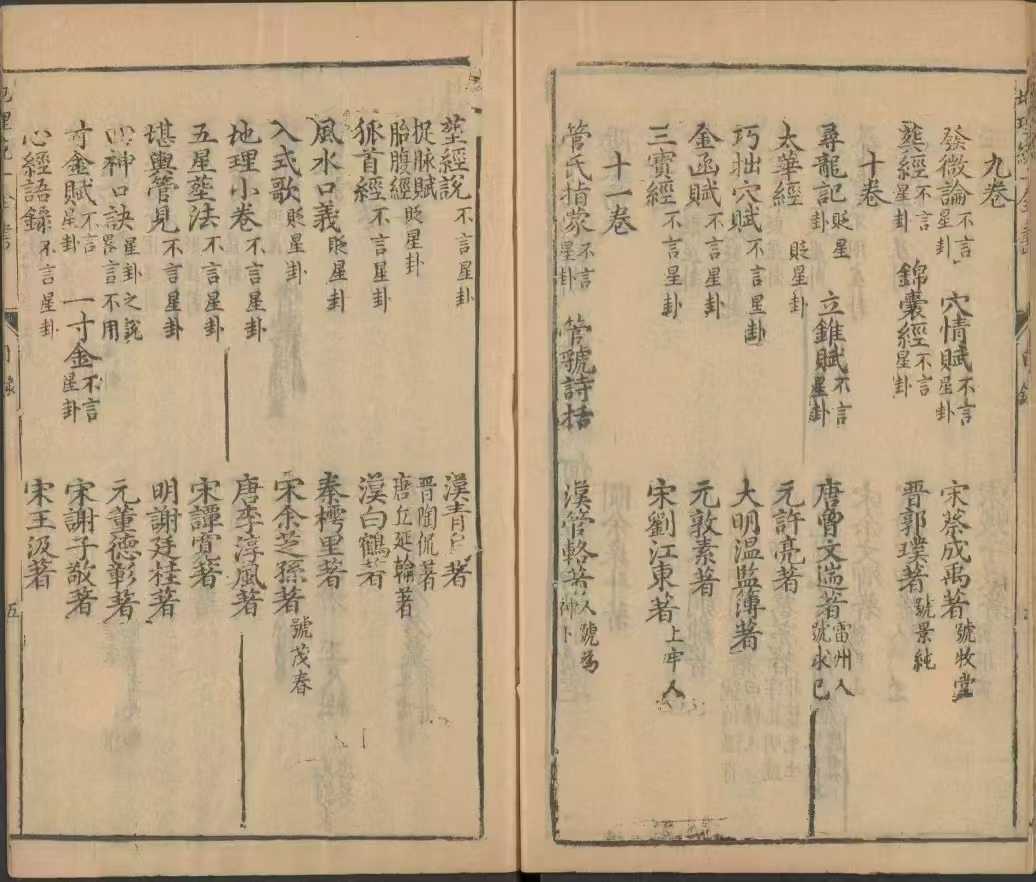 九卷
發微論不言星卦 穴情賦不言星卦 宋蔡成禹著號牧堂
葬經不言星卦 錦囊經不言星卦 晋郭璞著號景純
十卷
尋龍記貶星卦 立錐賦不言星卦 唐曾文遄著雷州人號求已
太華經貶星卦 元許亮著
巧拙穴賦不言星卦 大明溫監簿著
金函賦不言星卦 元敦素著
三寶經不言星卦 宋劉江東著上牢人
十一卷
管氏指蒙不言星卦 管號詩括 漢管輅著人號為神卜
葬經說不言星卦 漢青著
捉脉賦 晋陶侃著
胎腹經貶星卦 唐丘延翰著
狐首經不言星卦 漢白鶴著
風水口義貶星卦 秦樗里著
入式歌貶星卦 宋余芝孫著號茂春
地理小卷不言星卦 唐李淳風著
五星葬法不言星卦 宋譚寬著
堪輿管見不言星卦 明謝廷桂著
神口訣星卦之說畧言不用 元董德彰著
寸金賦不言星卦 一寸金不言星卦 宋謝子敬著
心經語錄不言星卦 宋王汲著
目錄
五